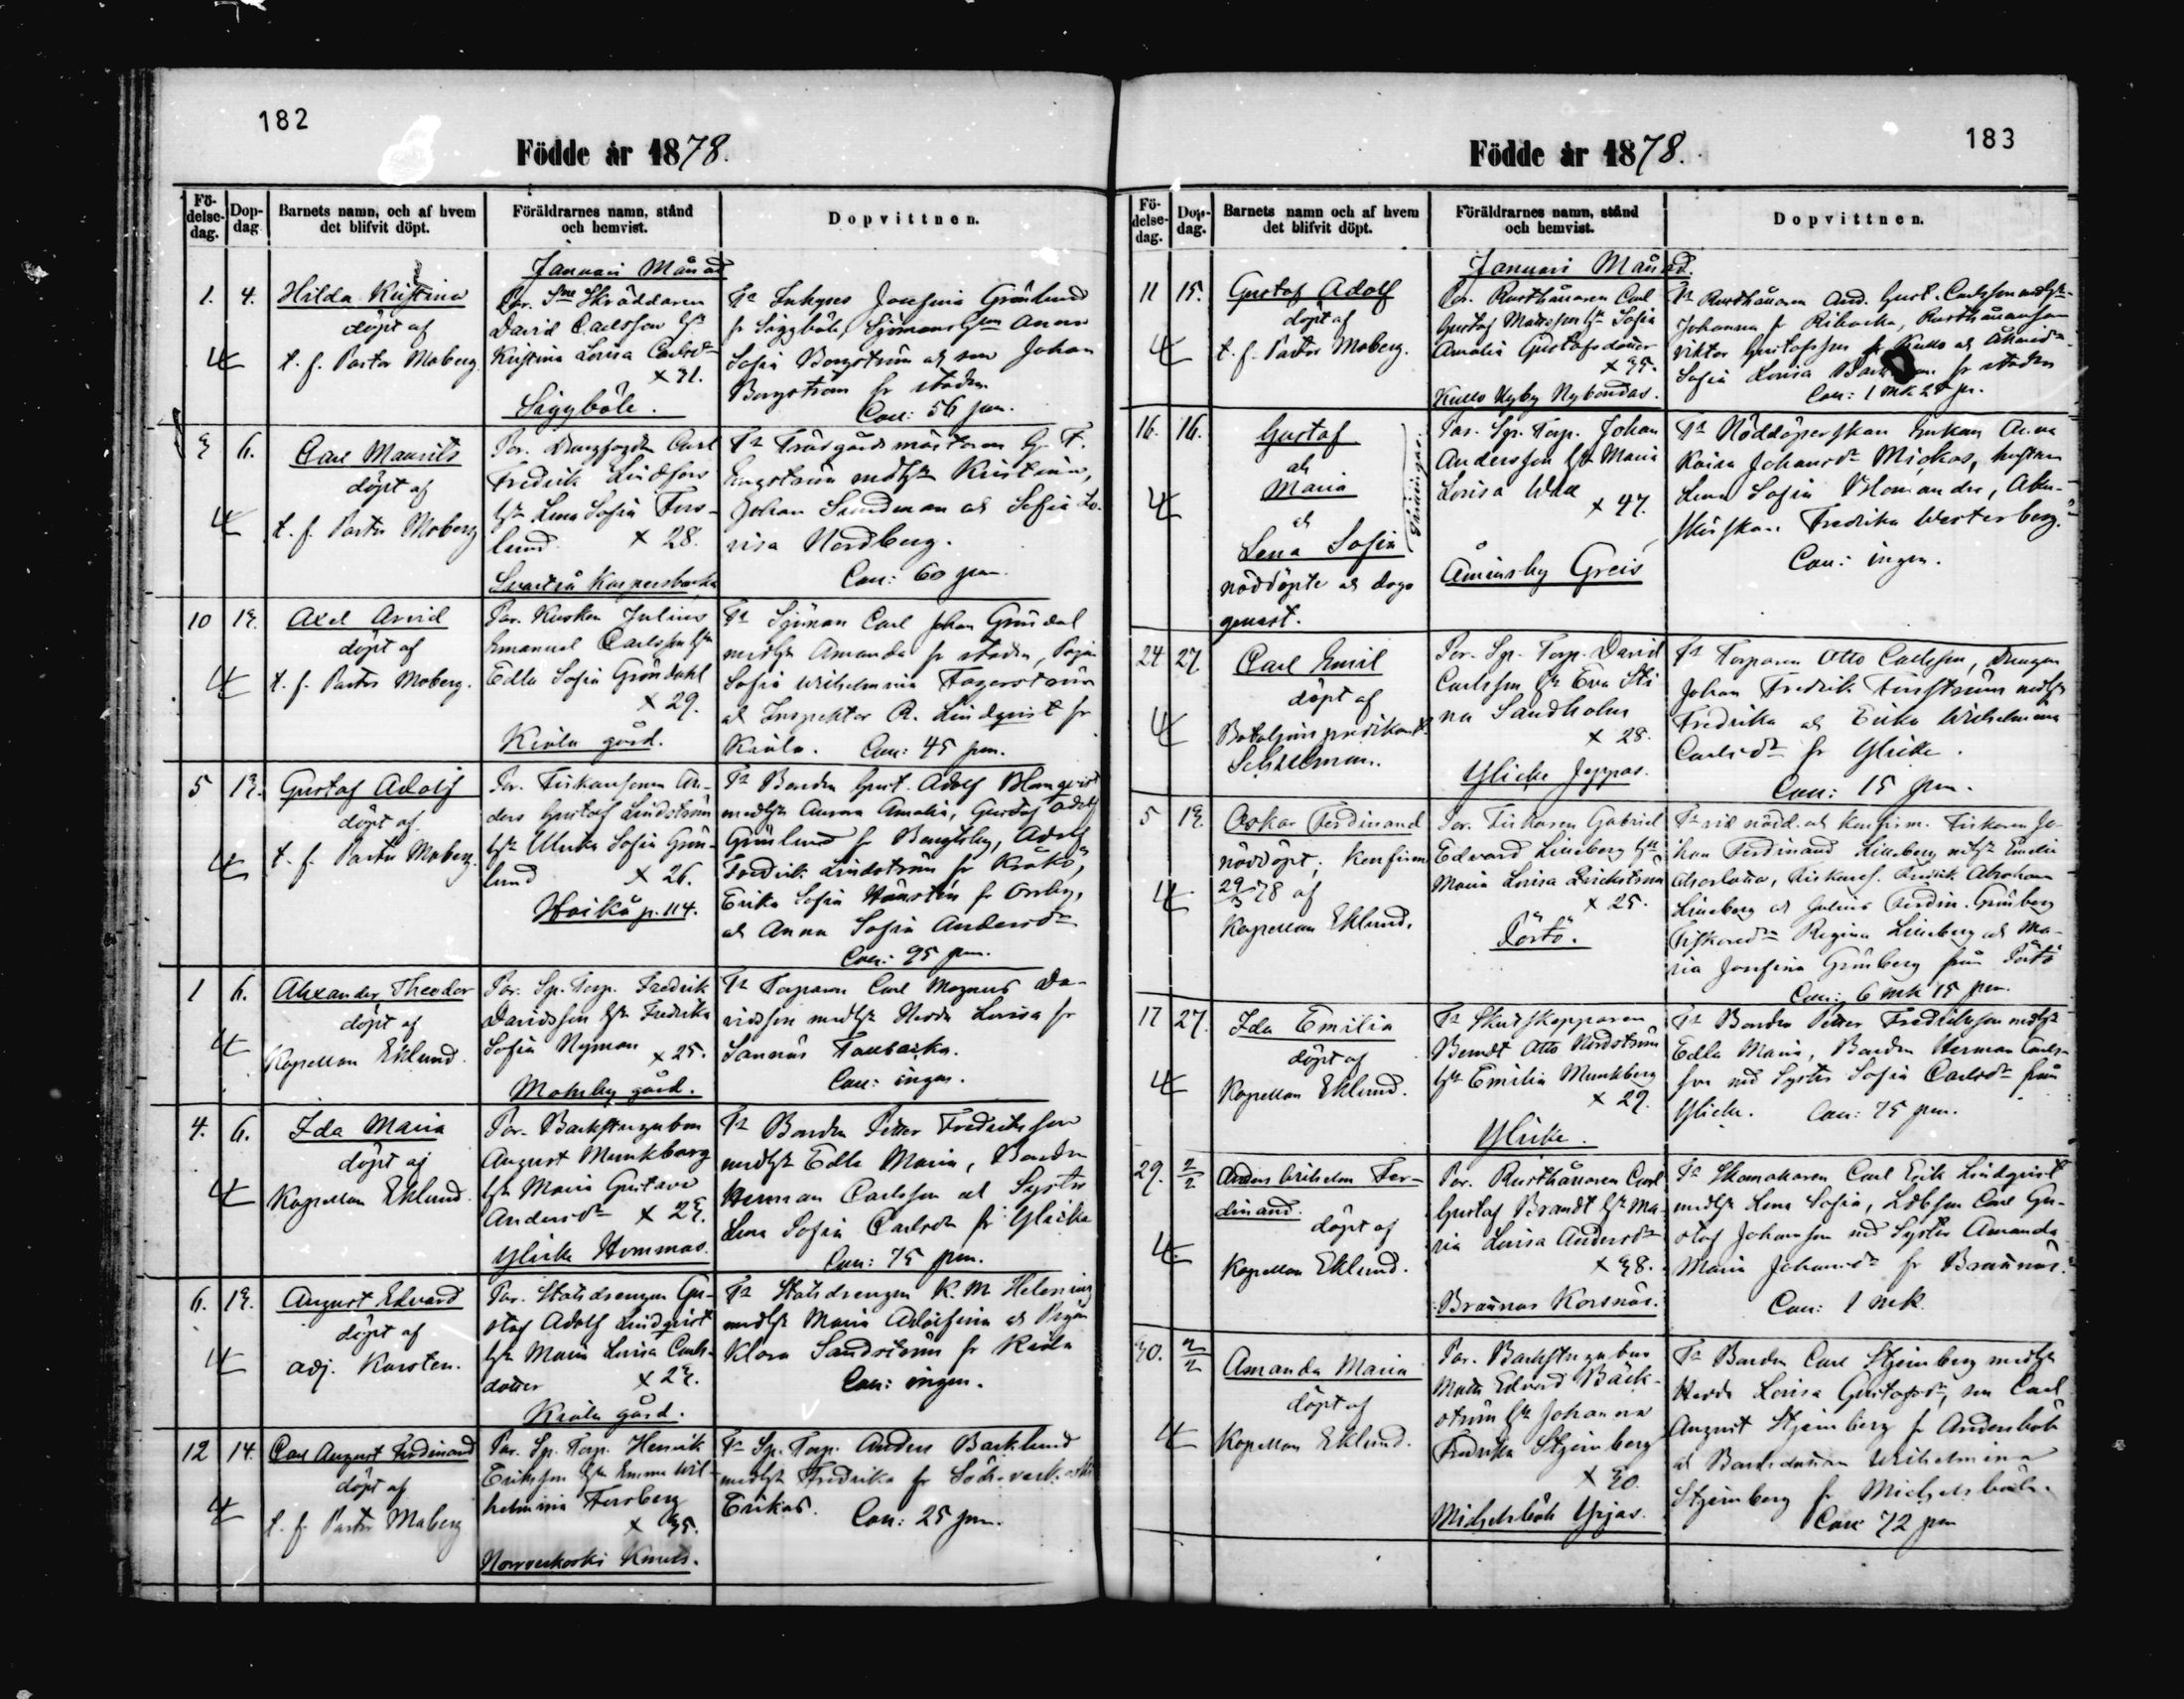 182
Födde år 1878.
Fö-
delse-
dag.
Dop-
dag
Barnets namn, och af hvem
det blifvit döpt.
Föräldrarnes namn, stånd
och hemvist.
Dopvittnen.
Januari Månad
1. 4.
Hilda Kristina
döpt af
t. f. Pastor Moberg.
Par. Skräddaren
David Carlsson
Kristina Lovisa Carlsdr
x 31.
Siggböle.
Josefina Grönlund
fr Siggböle, Anna
Sofia Borgström Johan
Borgström fr staden
Coll: 56 pen.
3 6.
Carl Maurits
döpt af
t. f. Pastor Moberg
Par. Carl
Fredrik Lindfors
hu Lena Sofia Fors-
lund x 28.
Svartså Kaspersbacka
Fr Trädgårdsmästaren G. F.
Engström Kristina,
Johan Sandman Sofia Lo-
visa Nordberg.
Coll: 60 pen.
10 13.
Axel Arvid
döpt af
t. f. Pastor Moberg.
Par. Kusken Julius
Emanuel Carlsson
Edla Sofia Gröndahl
x 29.
Kiala gård.
Fr Sjöman Carl Johan Gröndal
Amanda fr staden, Pigan
Sofia Wilhelmina Fagerström
Inspektor A. Lindqvist fr
Kiala. Coll: 45 pen.
5 13.
Gustaf Adolf
döpt af
t. f. Pastor Moberg.
Par. Fiskaresonen An-
ders Gustaf Lindström
Ulrika Sofia Grön-
lund x 26.
Haikå p. 114.
Fr Bonden Gust. Adolf Blomqvist
Amalia, Gustaf Adolf
Grönlund fr Bengtsby, Adolf
Fredrik Lindström fr Kråkö,
Erika Sofia fr
Anna Sofia Andersdr
Coll: 95 pen.
1 6.
Alexander Theodor
döpt af
Kapellan Eklund.
Par. Sp. Torp. Fredrik
Davidsson Fredrika
Sofia Nyman x 25.
Molnby gård.
Fr Torparen Carl Magnus Da-
vidsson Hedda Lovisa fr
Sannäs Tallbacka.
Coll: ingen.
4. 6.
Ida Maria
döpt af
Kapellan Eklund.
Par. Backstugubon
August Munkberg
Maria Gustava
Andersdr x 23.
Ylike Hommas.
Fr Bonden Petter Fredriksson
Edla Maria, Bonden
Herman Carlsson Syster
Lena Sofia Carlsdr fr Ylike
Coll: 75 pen.
6. 13.
August Edvard
döpt af
adj. Karsten.
Par. Statdrengen Gu-
staf Adolf Lindqvist
Maria Lovisa Carls-
dotter x 23.
Kiala gård.
Fr Statdrengen K. M. Helening
Maria Adolfina Pigan
Klara Sandström fr Kiala
Coll: ingen.
12 14.
Carl August Ferdinand
döpt af
t. f. Pastor Moberg
Par. Sp. Torp. Henrik
Eriksson Emma Wil-
helmina Forsberg
x 35.
Norrveckoski Knuts.
Fr Sp. Torp. Anders Backlund
Fredrika fr Söderveckoski
Erikas. Coll: 25 pen.
183
Födde år 1878.
Fö-
delse-
dag.
Dop-
dag.
Barnets namn och af hvem
det blifvit döpt.
Föräldrarnes namn, stånd
och hemvist.
Dopvittnen.
Januari Månad.
11 15.
Gustaf Adolf
döpt af
t. f. Pastor Moberg.
Par. Rusthållaren Carl
Gustaf Mattsson Sofia
Amalia Gustafsdotter
x 35.
Kullo Nyby Nybondas.
Fr Rusthållaren And. Gust. Carlsson
Johanna fr Ribacka,
Viktor Gustafsson fr Kullo
Sofia Lovisa fr staden
Coll: 1 mk 25 pn.
16. 16.
Gustaf
Maria
Lena Sofia
nöddöpte
genast.
Par. Sp. Torp. Johan
Andersson Maria
Lovisa Wall
x 47.
Åminsby Greis
Fr Nöddöperskan Enkan Anna
Kaisa Johansdr Mickas, hustrun
Lena Sofia Blomander,
Fredrika Westerberg.
Coll: ingen.
24 27.
Carl Emil
döpt af
Bataljonspredikant
Schalman.
Par. Sp. Torp. David
Carlsson Eva Sti
na Sandholm
x 28.
Ylike Jeppas.
Fr Torparen Otto Carlsson, Drengen
Johan Fredrik
Fredrika Erika Wilhelmina
Carlsdr fr Ylike.
Coll: 15 pen.
5 13.
Oskar Ferdinand
nöddöpt; Konfirm
29/3 78 af
Kapellan Eklund.
Par. Fiskaren Gabriel
Edvard Lilleberg
Maria Lovisa
x 25.
Pörtö.
Fr vid nödd. och konfirm. Fiskaren Jo-
han Ferdinand Lilleberg Emelie
Charlotta, Fredrik Abraham
Lilleberg Julius Ferdin. Grönberg
Regina Lilleberg Ma-
ria Josefina Grönberg från Pörtö
Coll: 6 mk 15 pen.
17 27.
Ida Emilia
döpt af
Kapellan Eklund.
Fr Skutskepparen
Berndt Otto Nordström
Emilia Munkberg
x 29.
Ylike.
Fr Bonden Petter Fredriksson
Edla Maria, Bonden Herman Carls-
son med Syster Sofia Carlsdr från
Ylike. Coll: 75 pen.
29. 2/2
Anders Wilhelm Fer-
dinand.
döpt af
Kapellan Eklund.
Par. Rusthållaren Carl
Gustaf Brandt Ma-
ria Lovisa Andersdr
x 38.
Braunas Korsnäs.
Fr Skomakaren Carl Erik Lindqvist
Lena Sofia, Carl Gu-
staf Johansson med Syster Amanda
Maria Johansdr fr Braunas.
Coll: 1 mk.
30. 2/2
Amanda Maria
döpt af
Kapellan Eklund.
Par. Backstugubon
Matts Edvard Bäck-
ström Johanna
Fredrika Stjernberg
x 30.
Mickelsböle Yrjas.
Fr Bonden Carl Stjernberg
Hedda Lovisa Gustafsdr, son Carl
August Stjernberg fr Andersböle
Wilhelmina
Stjernberg fr Mickelsböle.
Coll 72 pen